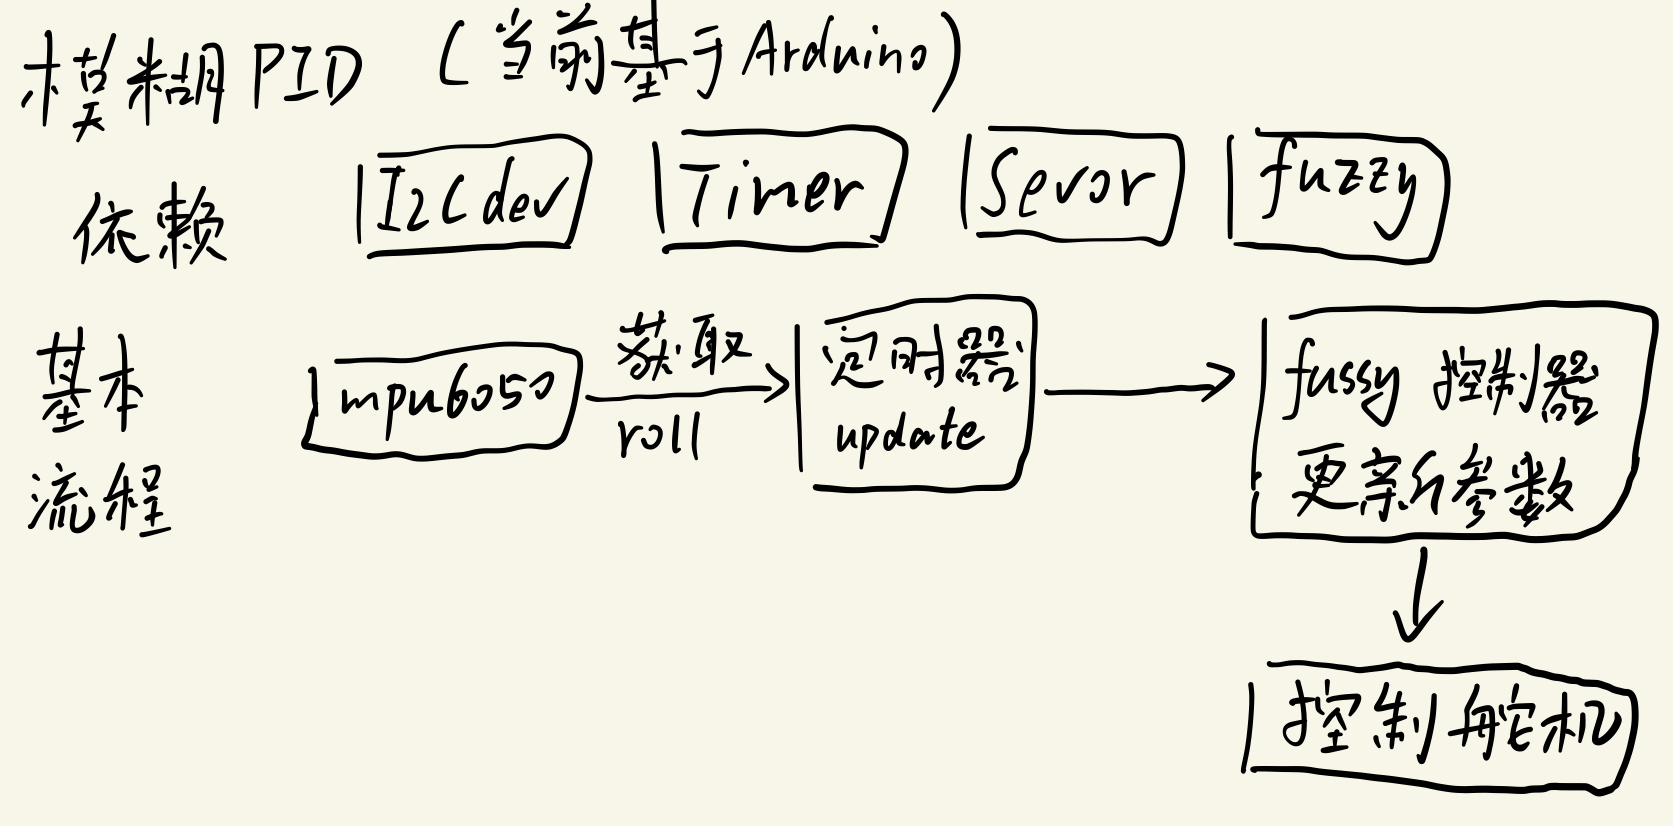 模糊PID （当前基于Arduino）
依赖 I2Cdev Timer Sevor fuzzy
基本流程
mpu6050
获取
roll
定时器
update
fussy 控制器
更新参数
控制舵机